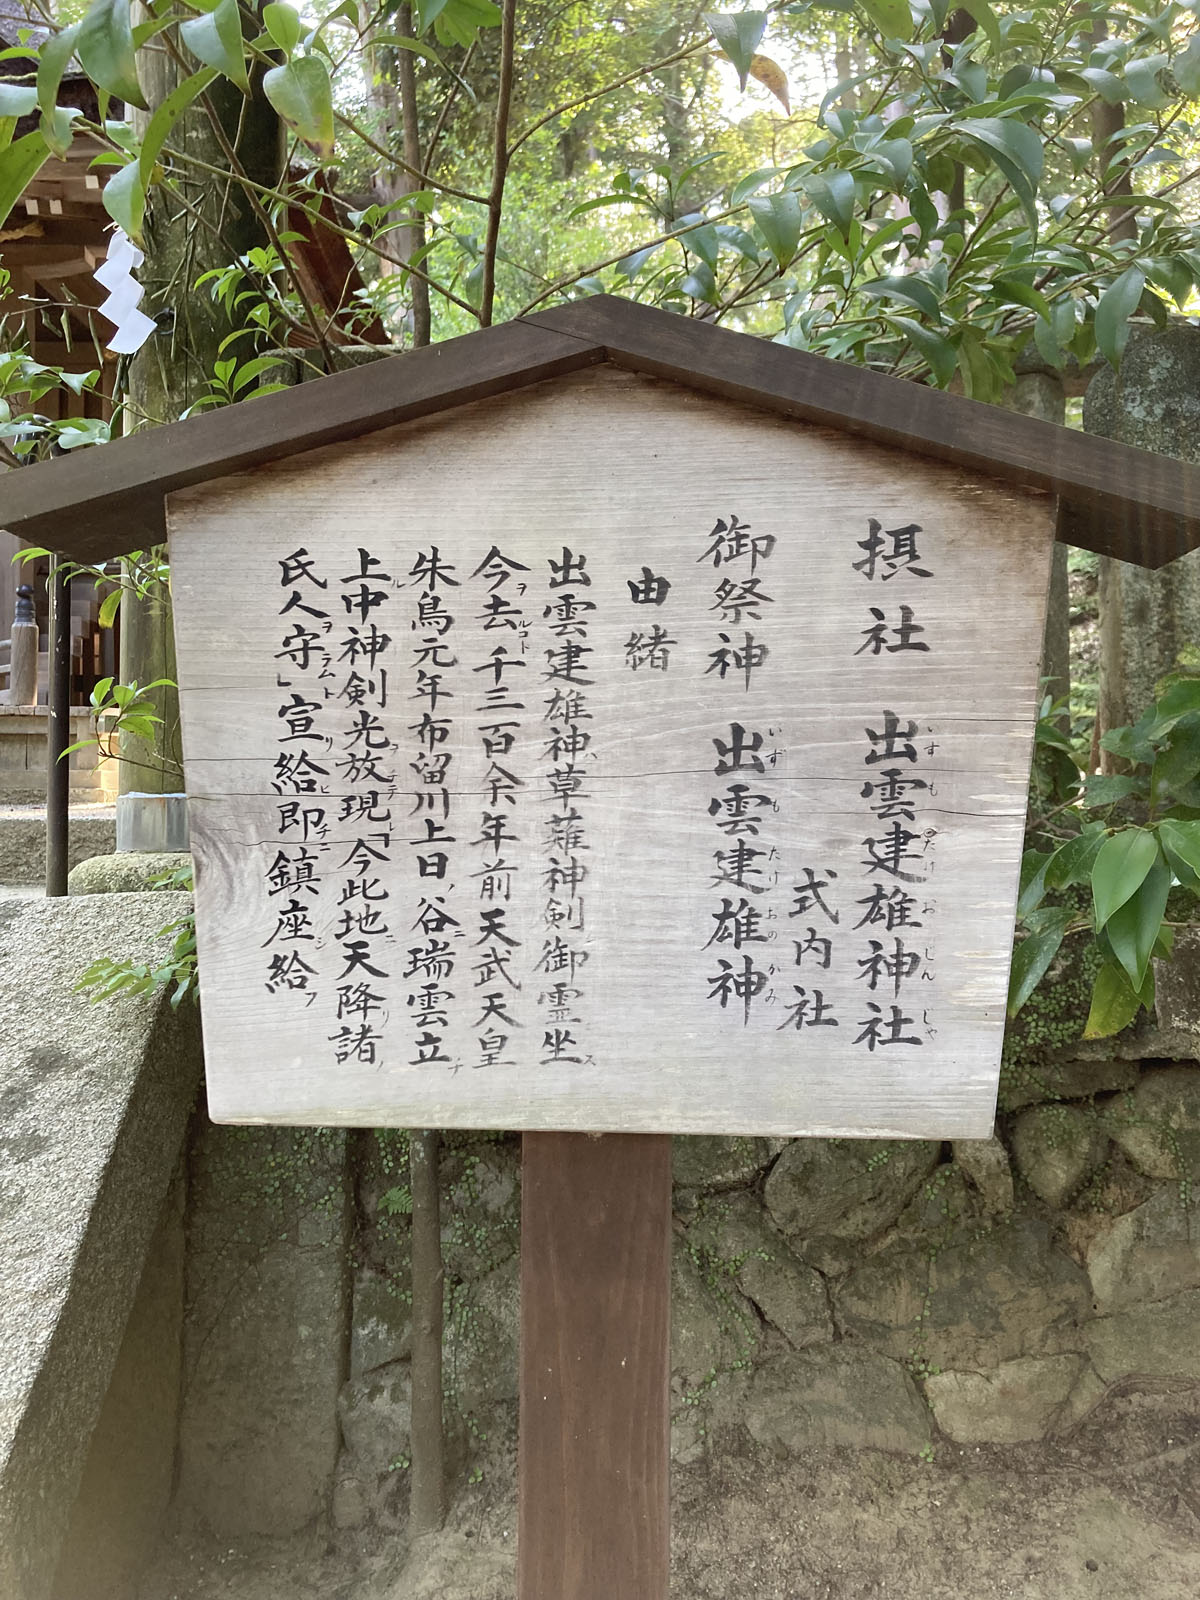 摂社 出雲建雄神社
いずも たけお じんじゃ
式内社
御祭神 出雲建雄神
いず も たけ おの かみ
由緒
出雲建雄神ハ草薙神剣ノ御霊ニ坐ス
今ヲ去ルコト千三百余年前天武天皇
朱鳥元年布留川上日ノ谷ニ瑞雲立ナ
上ル中神剣光ヲ放チテ現レ「今此地ニ天降リ諸ノ
氏人ヲ守ラムト」宣リ給ヒ即チニ鎮座シ給フ